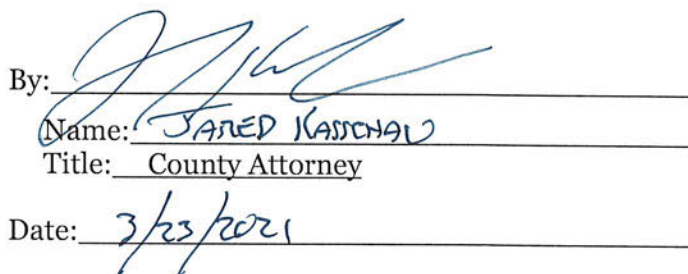 By:
Name: JARED KASSCHAU
Title: County Attorney
Date: 3/23/2021